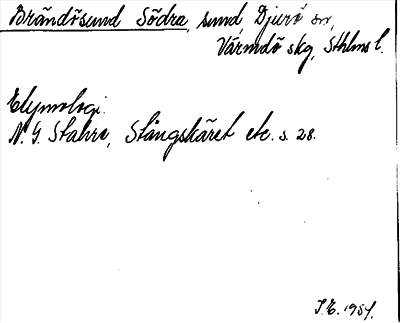 Brändösund Södra, sund, Djurö sn,
Värmdö skg, Sthlms l.
Etymologi.
N. G. Stahre, Stångskäret etc. s. 28.
S.E. 1954.